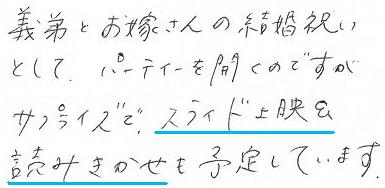 義弟とお嫁さんの結婚祝い
として、パーティーを開くのですが
サプライズで、スライド上映&
読みきかせも予定しています。